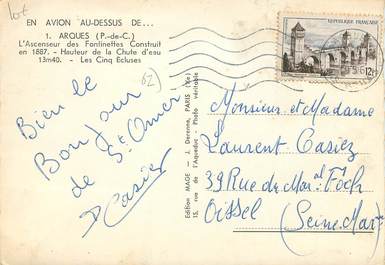 EN AVION AU-DESSUS DE...
1. ARQUES (P.-de-C.)
L'Ascenseur des Fontinettes Construit
en 1887. - Hauteur de la Chute d'eau
13m40. - Les Cinq Ecluses
62
Bien le
Bonjour
de St Omer
Casiez
Edition MAGE - J. Derenne, PARIS (Xe)
15, rue de l'Aqueduc Photo véritable
REPUBLIQUE FRANÇAISE
12F
Monsieur et Madame
Laurent Casiez
39 Rue du Mar.al Foch
Oissel
(Seine Mar.me